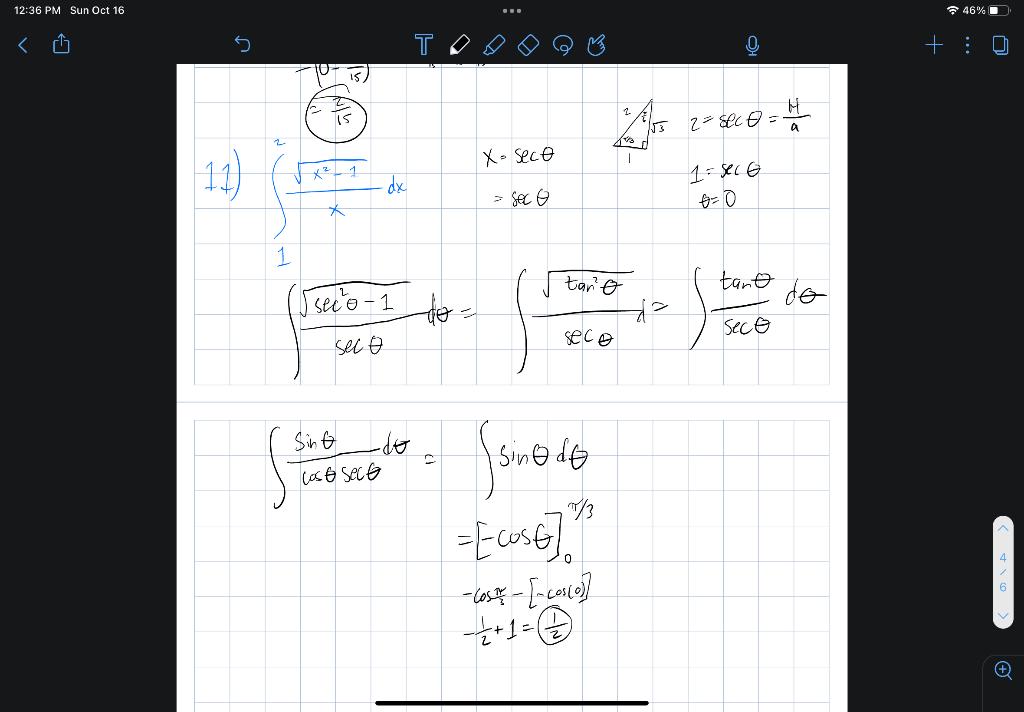 12:36 PM Sun Oct 16
46%
T
= 2/15
11) ∫₁² √(x² - 1) / x dx
x = sec θ
= sec θ
2 π/3 √3 1
2 = sec θ = H/a
1 = sec θ
θ = 0
∫ √(sec²θ - 1) / sec θ dθ = ∫ √(tan²θ) / sec θ d = ∫ tan θ / sec θ dθ
∫ sin θ / (cos θ sec θ) dθ = ∫ sin θ dθ
= [-cos θ]₀^(π/3)
-cos π/3 - [-cos(0)]
-1/2 + 1 = 1/2
4
/
6